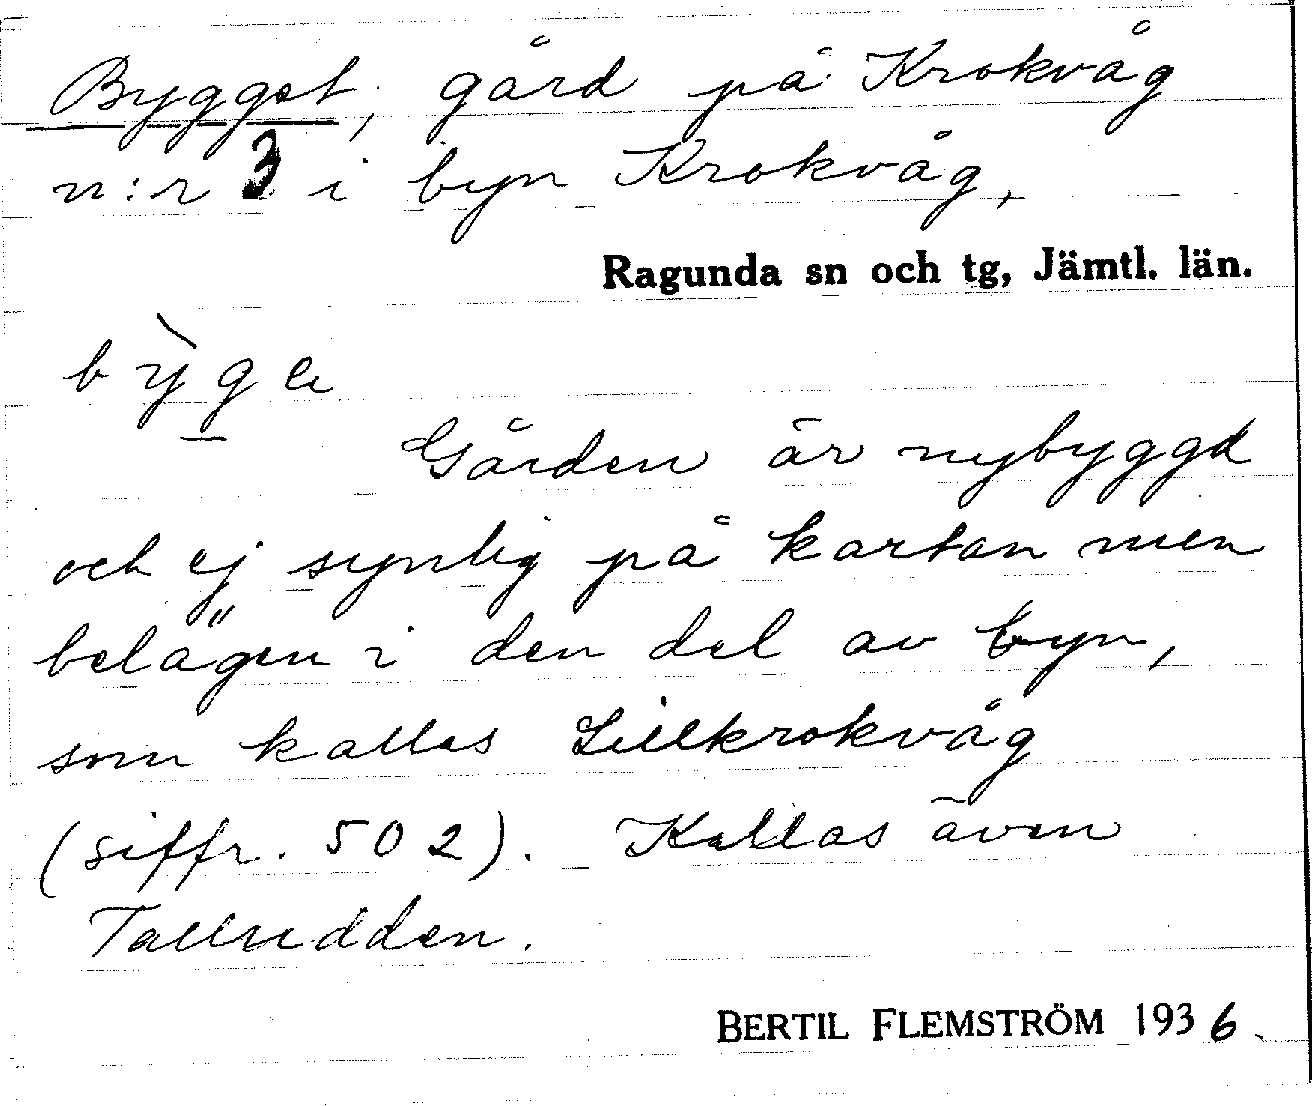 Bygget, gård på Krokvåg
n:r 3 i byn Krokvåg,
Ragunda sn och tg, Jämtl. län.
Gården är nybyggd
och ej synlig på kartan men
belägen i den del av byn,
som kallas Lillkrokvåg
(siffr. 502). Kallas även
Talludden.
BERTIL FLEMSTRÖM 1936